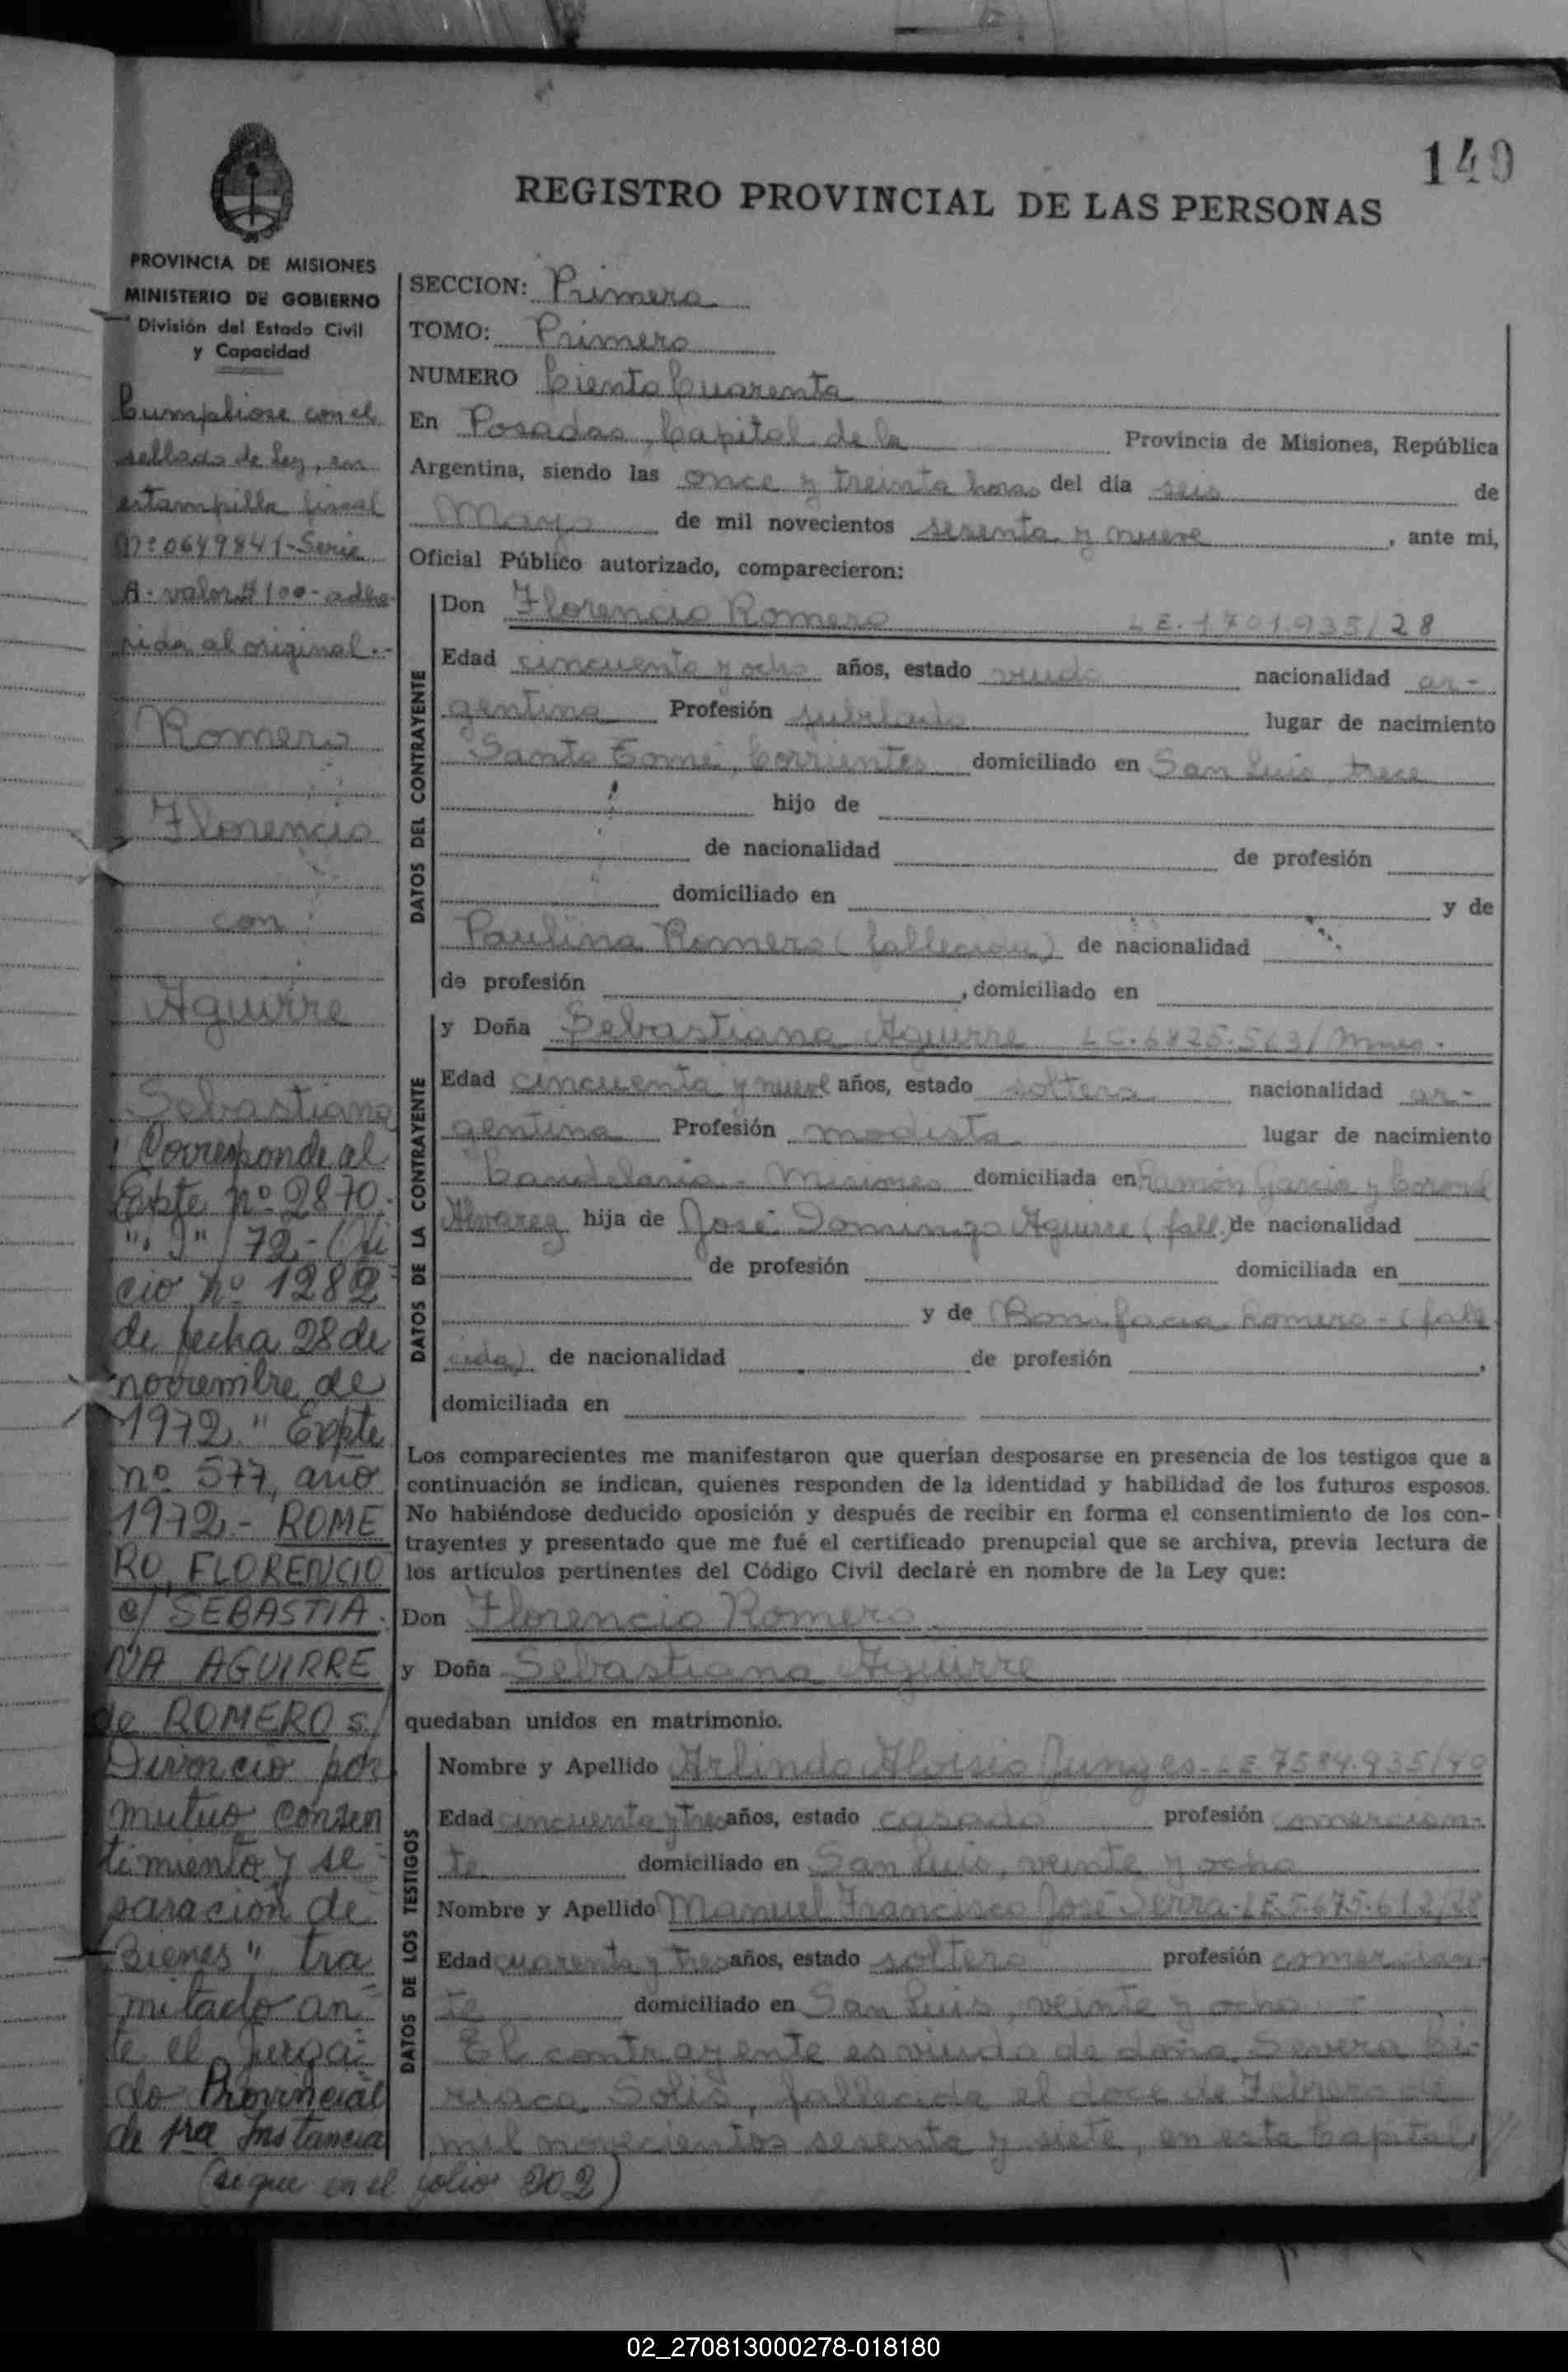 140
REGISTRO PROVINCIAL DE LAS PERSONAS
PROVINCIA DE MISIONES
MINISTERIO DE GOBIERNO
División del Estado Civil
y Capacidad
Cumpliose con el
sellado de ley, en
estampilla fiscal
Nº 0649841-Serie
A-valor $ 100-adhe-
rida al original.-
Romero
Florencio
con
Aguirre
Sebastiana
Corresponde al
Expte nº 2870.
72.-
cio nº 1282
de fecha 28 de
noviembre de
1972 " Expte
nº 577, año
1972,- ROME
RO, FLORENCIO
c/ SEBASTIA.
NA AGUIRRE
de ROMERO s/
Divorcio por
mutuo consen
timiento y se
paracion de
Bienes" tra
mitado an
te el Juzga-
do Provincial
de 1ra Instancia
(sigue en el folio 202)
SECCION: Primera
TOMO: Primero
NUMERO Ciento Cuarenta
En Posadas, Capital de la Provincia de Misiones, República
Argentina, siendo las once y treinta horas del día seis de
Mayo de mil novecientos sesenta y nueve, ante mi,
Oficial Público autorizado, comparecieron:
DATOS DEL CONTRAYENTE
Don Florencio Romero L E. 1701.935/28
Edad cincuenta y ocho años, estado viudo nacionalidad ar-
gentina Profesión jubilado lugar de nacimiento
Santo Tomé, Corrientes domiciliado en San Luis, trece
hijo de
de nacionalidad de profesión
domiciliado en y de
Paulina Romero (fallecida) de nacionalidad
de profesión , domiciliado en
DATOS DE LA CONTRAYENTE
y Doña Sebastiana Aguirre LC. 6825.563/Mnes.
Edad cincuenta y nueve años, estado soltera nacionalidad ar-
gentina Profesión modista lugar de nacimiento
Candelaria - Misiones domiciliada en Ramón García y Coronel
Alvarez hija de José Domingo Aguirre (fall.) de nacionalidad
de profesión domiciliada en
y de Bonifacia Romero - (falle
cida) de nacionalidad de profesión ,
domiciliada en
Los comparecientes me manifestaron que querían desposarse en presencia de los testigos que a
continuación se indican, quienes responden de la identidad y habilidad de los futuros esposos.
No habiéndose deducido oposición y después de recibir en forma el consentimiento de los con-
trayentes y presentado que me fué el certificado prenupcial que se archiva, previa lectura de
los artículos pertinentes del Código Civil declaré en nombre de la Ley que:
Don Florencio Romero
y Doña Sebastiana Aguirre
quedaban unidos en matrimonio.
DATOS DE LOS TESTIGOS
Nombre y Apellido Arlindo Aloisio Junges - LE 7584.935/40
Edad cincuenta y tres años, estado casado profesión comercian-
te domiciliado en San Luis, veinte y ocho
Nombre y Apellido Manuel Francisco José Serra - LE 5.675.612/28
Edad cuarenta y tres años, estado soltero profesión comercian-
te domiciliado en San Luis, veinte y ocho -
El contrayente es viudo de doña Severa Ci-
riaca Solis, fallecida el doce de Febrero de
mil novecientos sesenta y siete, en esta Capital,
02_270813000278-018180